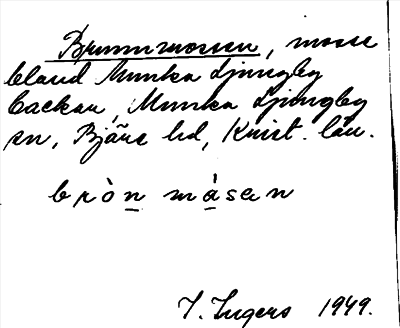 Brunnmossen, mosse
bland Munka Ljungby
backar, Munka Ljungby
sn, Bjäre hd, Krist. län.
bròn màsan
I. Ingers 1949.